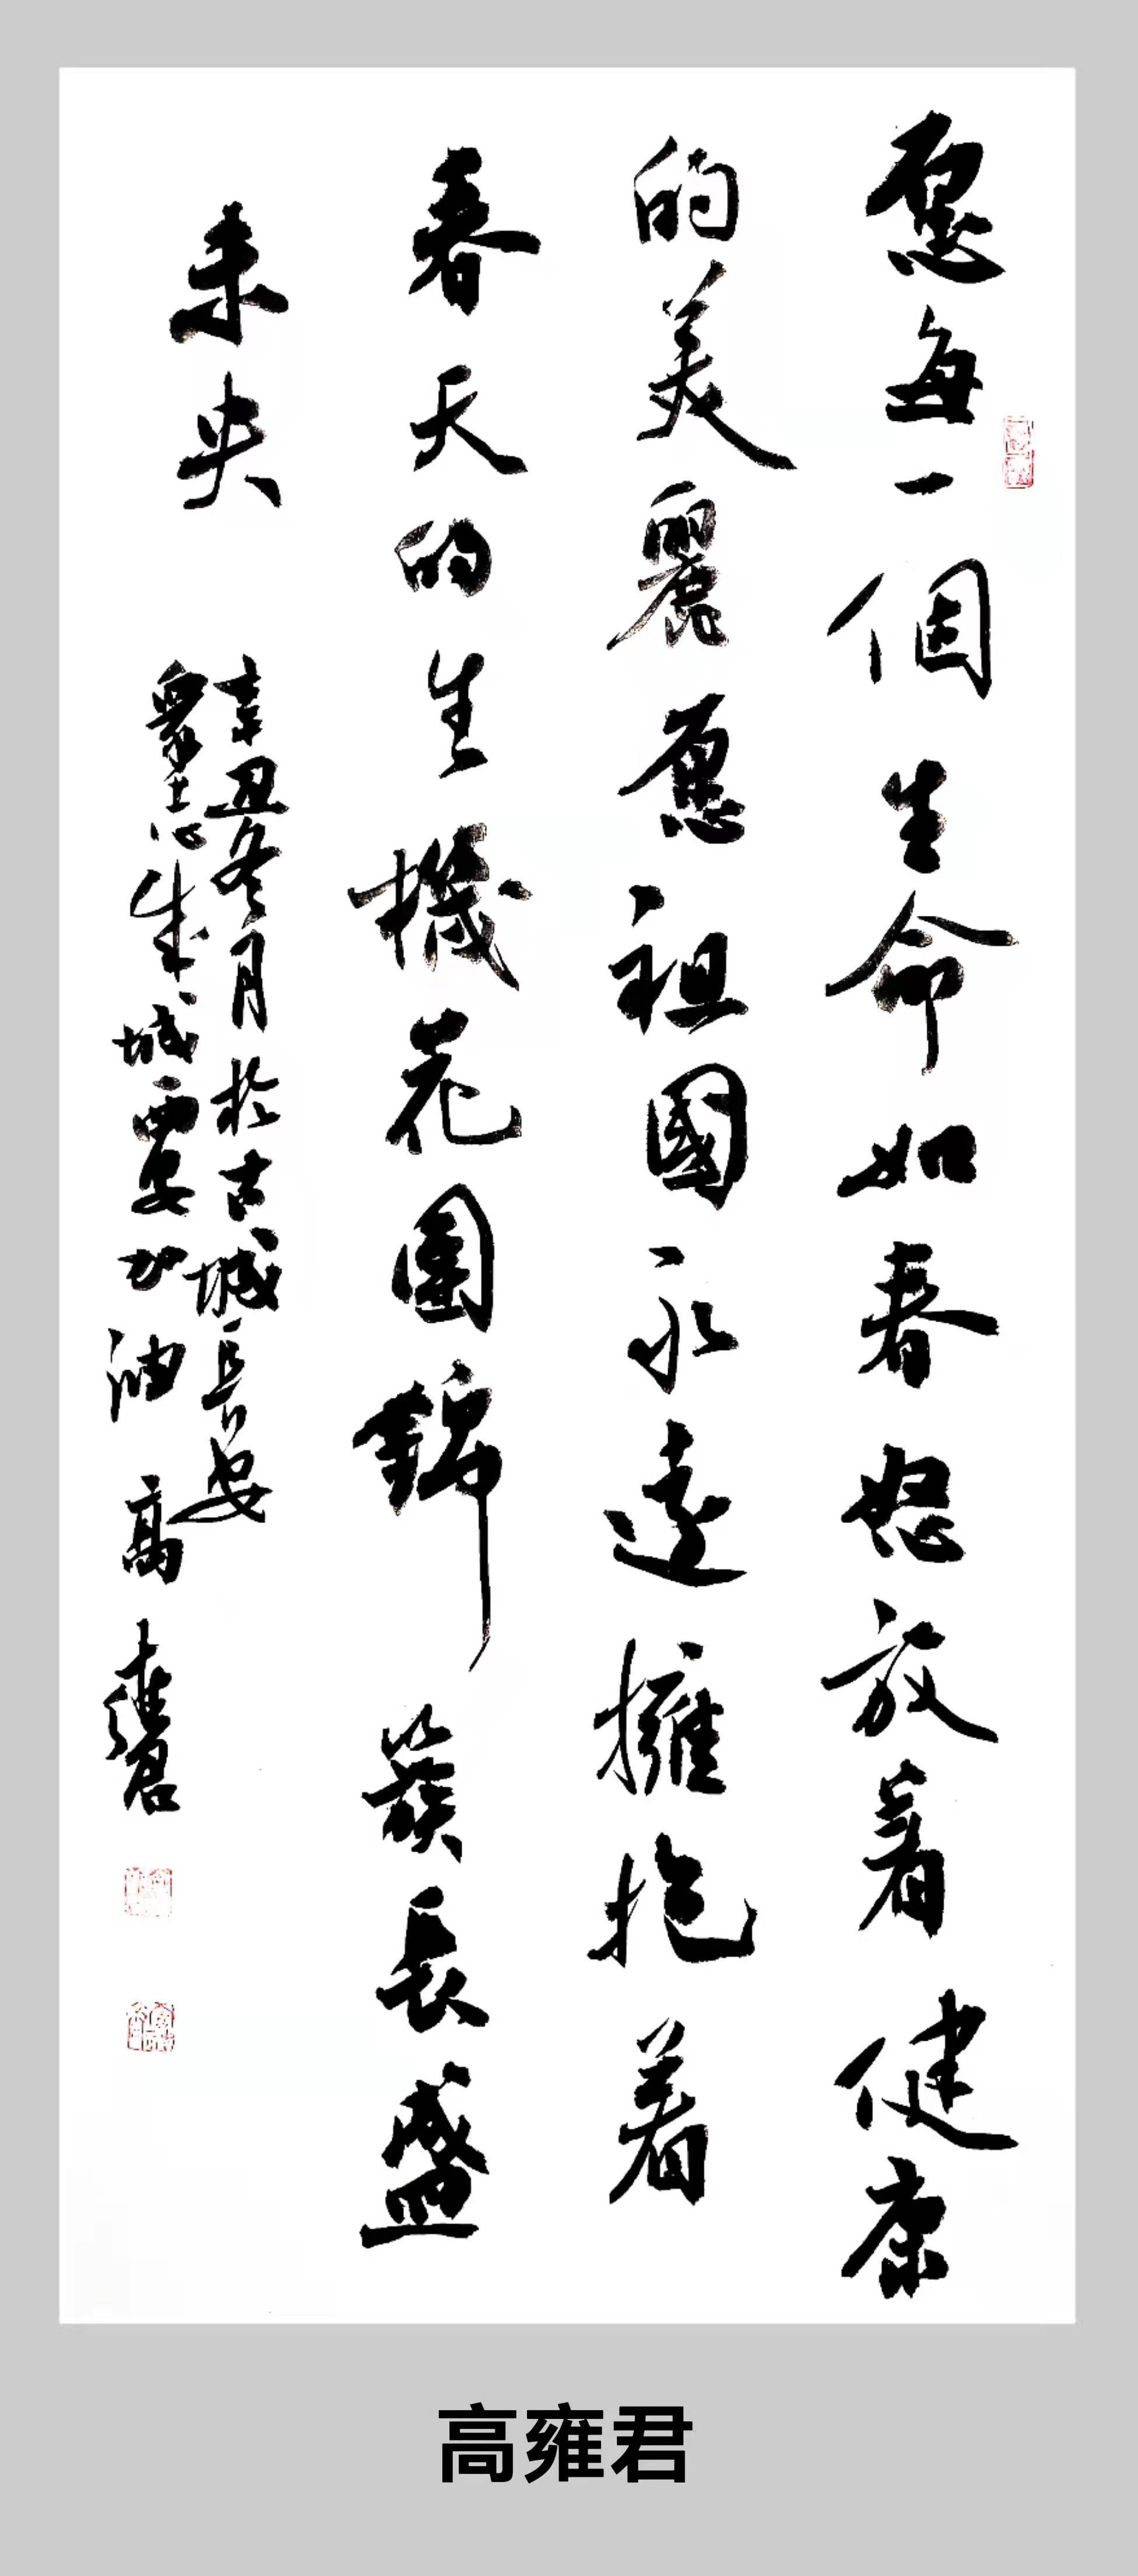 愿每一個生命如春怒放着健康
的美麗愿祖國永遠擁抱着
春天的生機花團錦簇長盛
未央
辛丑冬月於古城長安
眾志成城西安加油 高雍君
高雍君